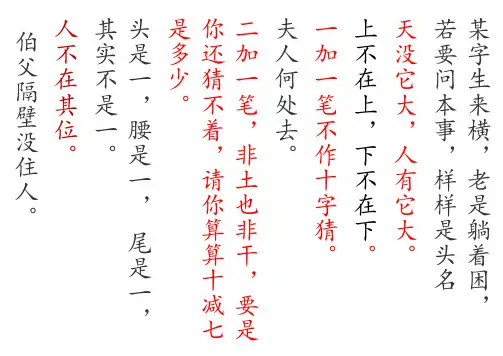 某字生来横，老是躺着困，
若要问本事，样样是头名
天没它大，人有它大。
上不在上，下不在下。
一加一笔不作十字猜。
夫人何处去。
二加一笔，非土也非干，要是
你还猜不着，请你算算十减七
是多少。
头是一，腰是一，尾是一，
其实不是一。
人不在其位。
伯父隔壁没住人。